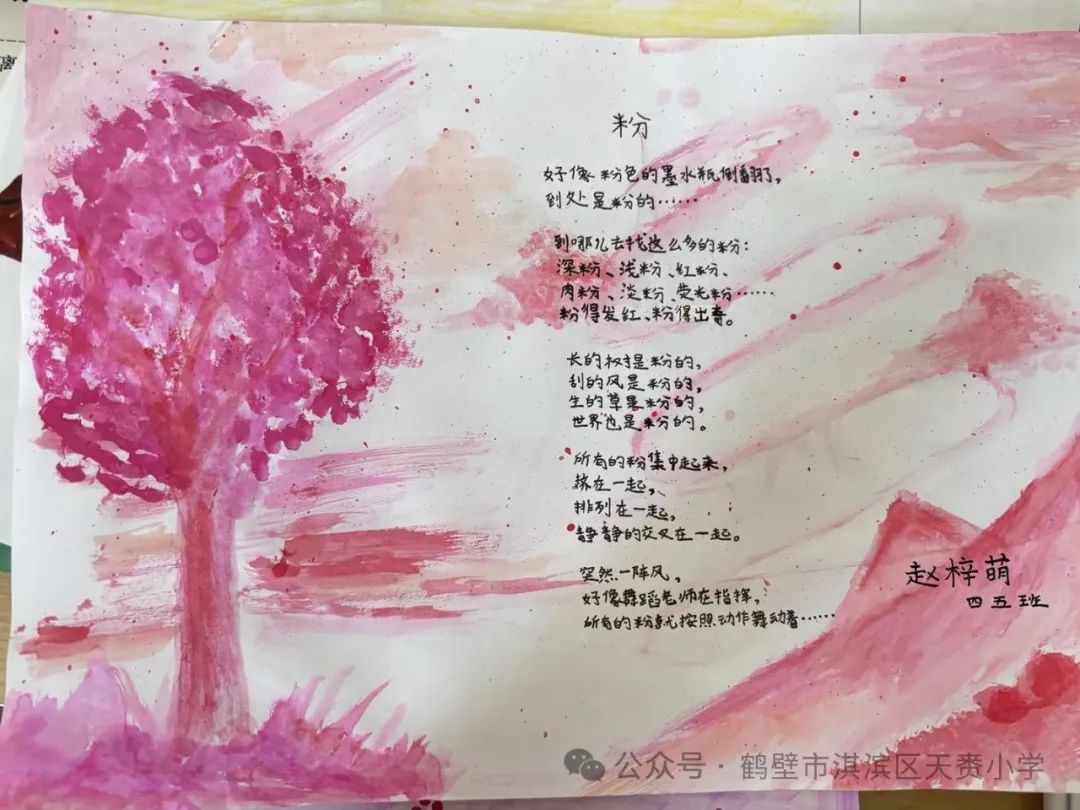 粉
好像粉色的墨水瓶倒翻了，
到处是粉的……
到哪儿去找这么多的粉：
深粉、浅粉、红粉、
肉粉、淡粉、荧光粉……
粉得发红、粉得出奇。
长的树是粉的，
刮的风是粉的，
生的草是粉的，
世界也是粉的。
所有的粉集中起来，
挤在一起，
排列在一起，
静静的交叉在一起。
突然一阵风，
好像舞蹈老师在指挥，
所有的粉就按照动作舞动着……
赵梓萌
四五班
公众号·鹤壁市淇滨区天赉小学
离